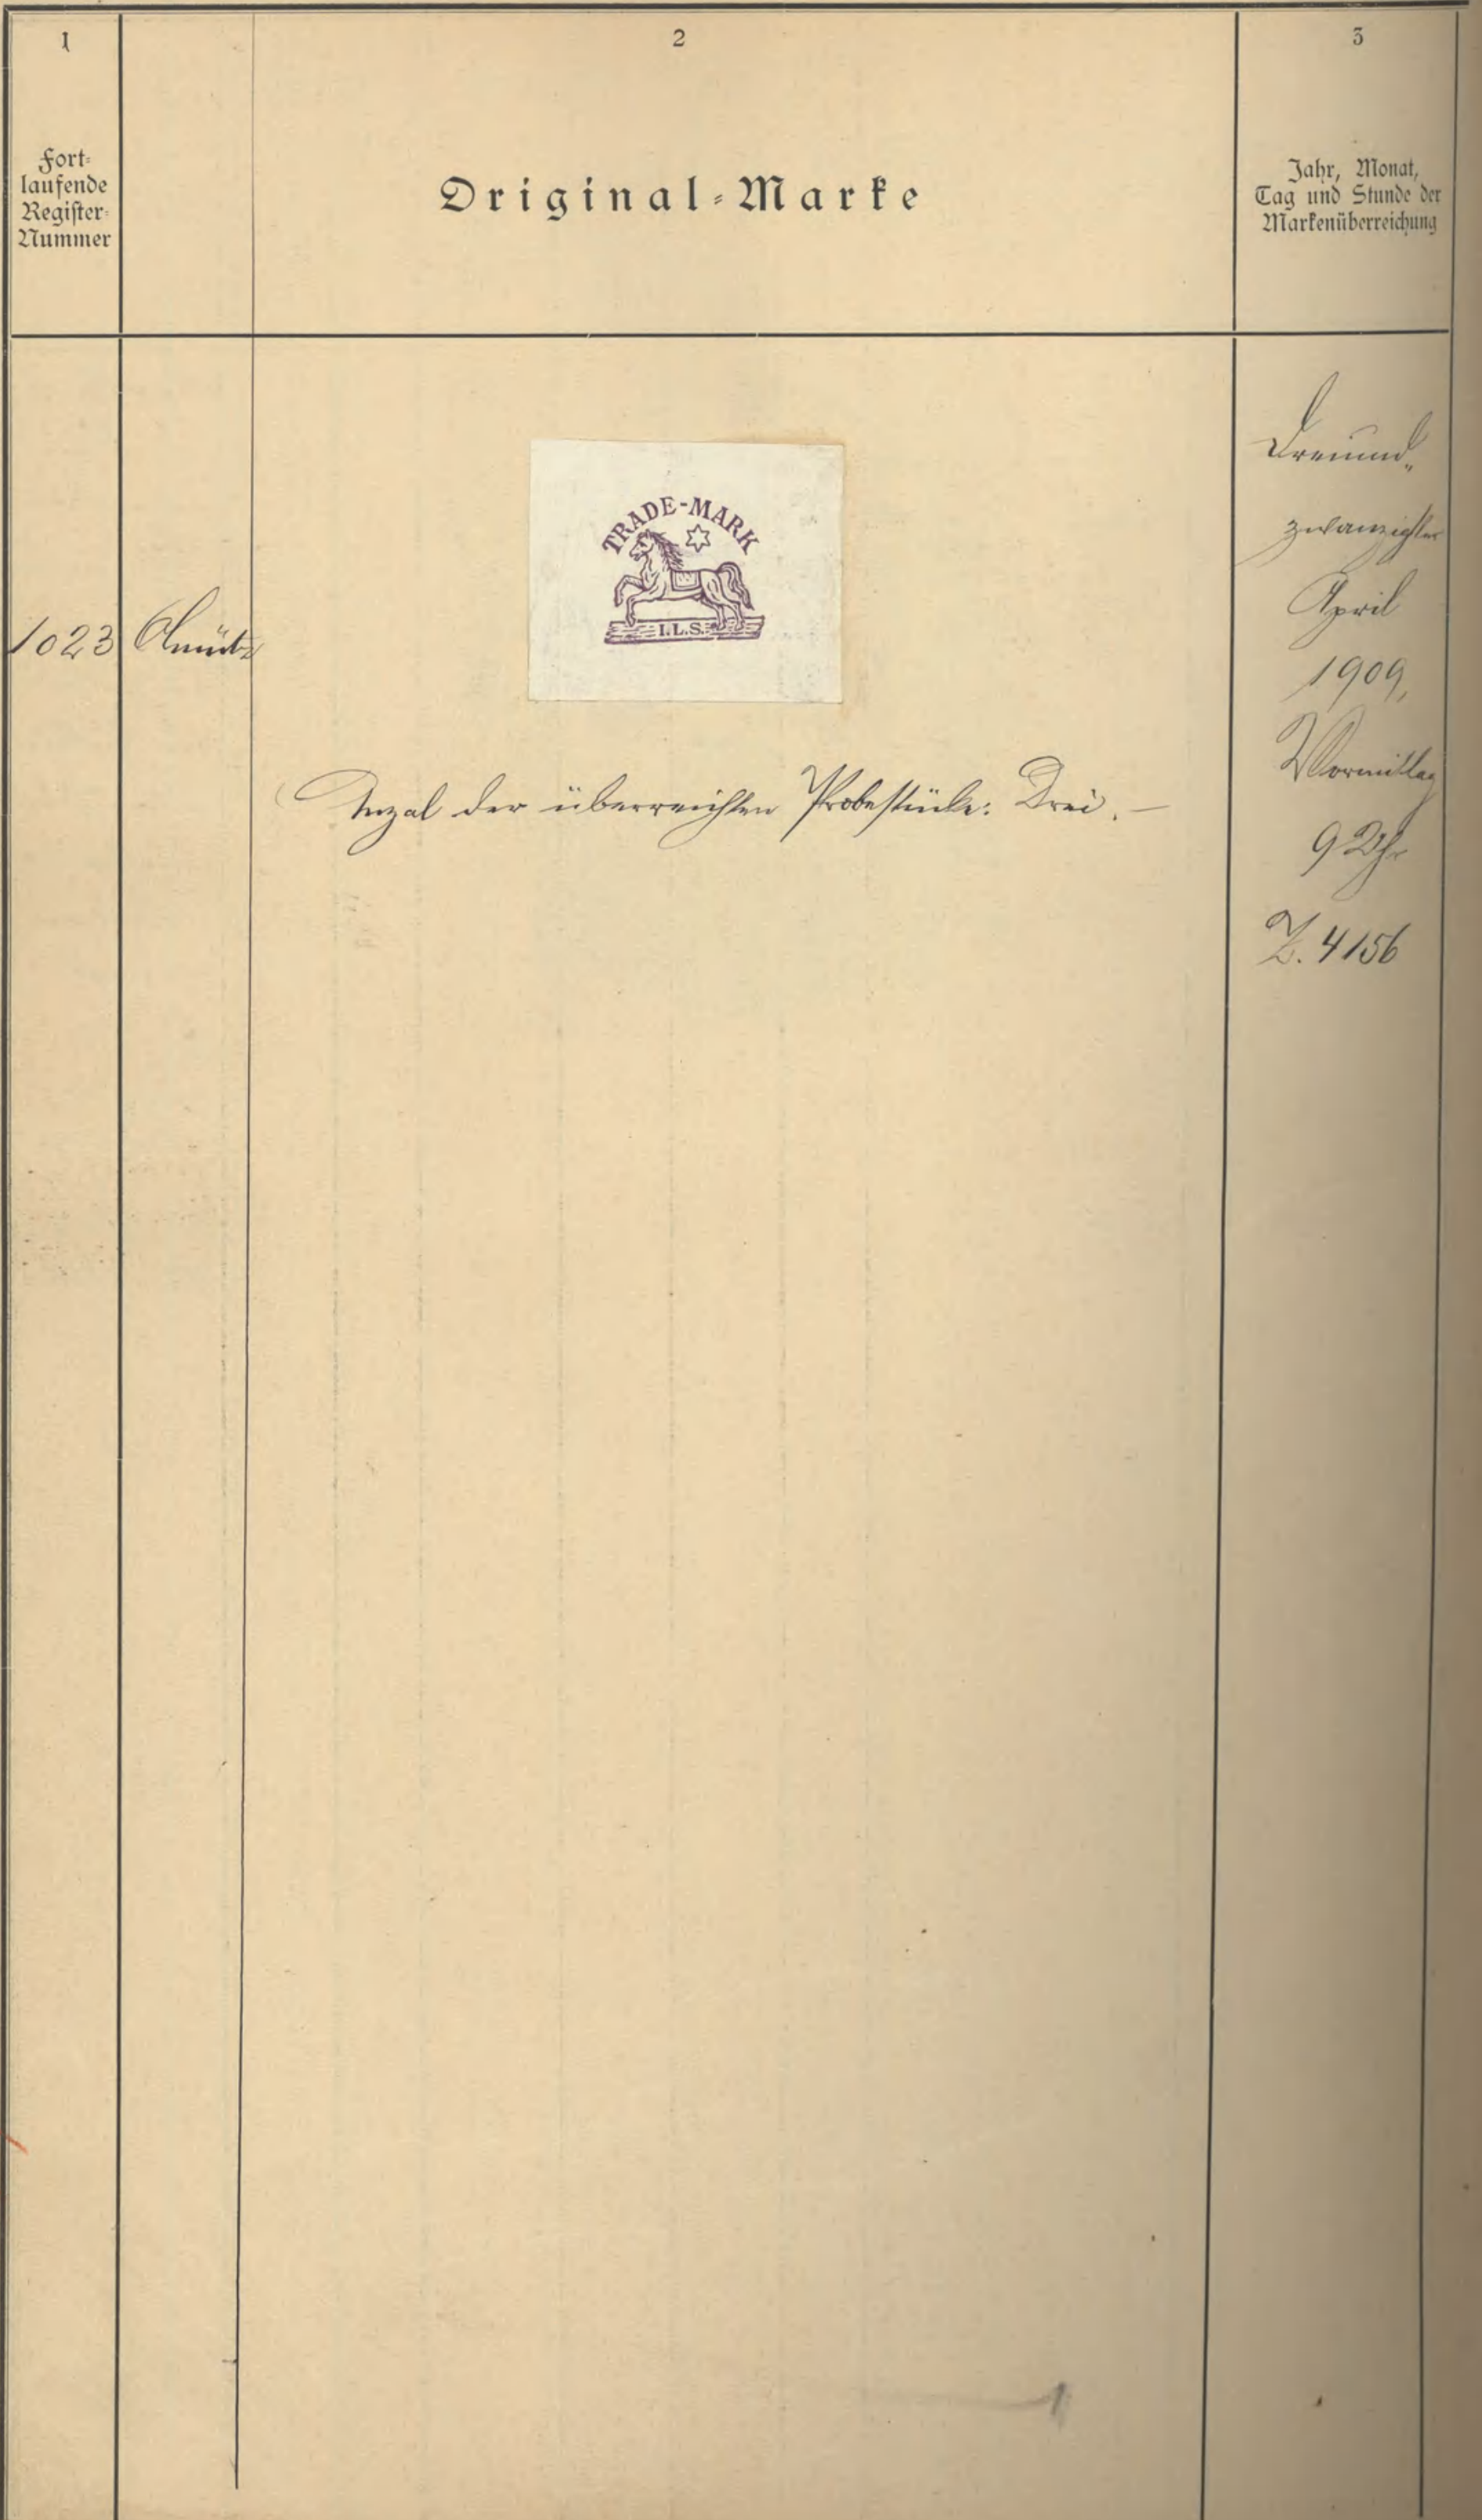 1
2
3
Fort-
laufende
Register-
Nummer
Original-Marke
Jahr, Monat,
Tag und Stunde der
Markenüberreichung
1023
Olmütz
TRADE-MARK
I.L.S.
Anzal der überreichten Probestücke: Drei. —
Dreiund-
zwanzigster
April
1909,
Vormittag
9 Uhr
Z. 4156